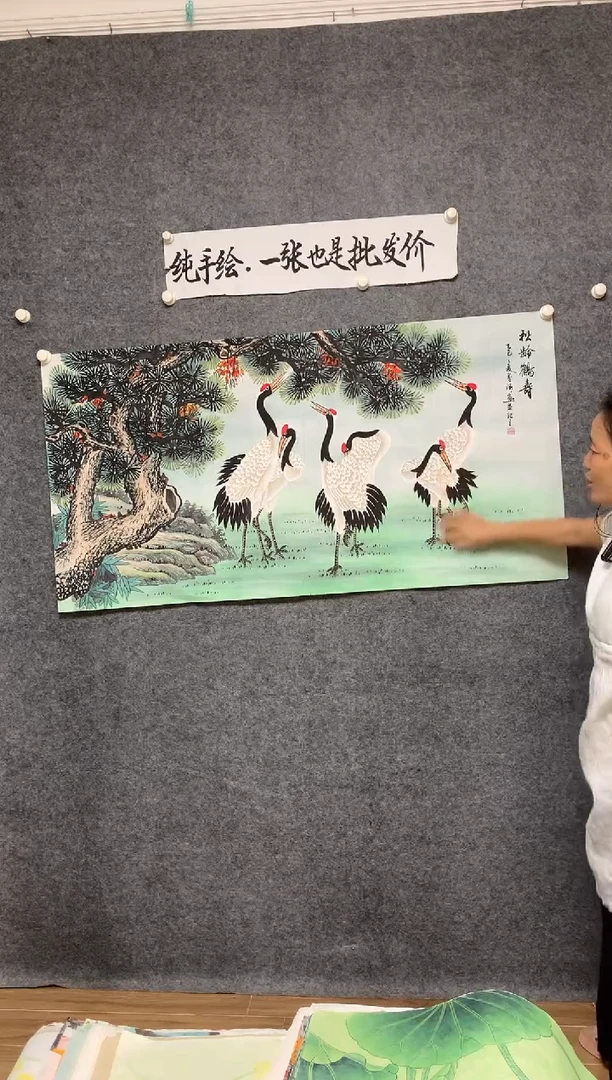 纯手绘.一张也是批发价
松龄鹤寿